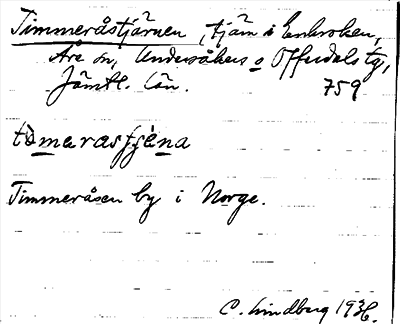 Timmeråstjärnen, tjärn i Enbroken,
Åre sn, Undersåkers o Offerdals tg,
Jämtl. län. 759
tìmerasfjèna
Timmeråsen by i Norge.
C. Lindberg 1936.